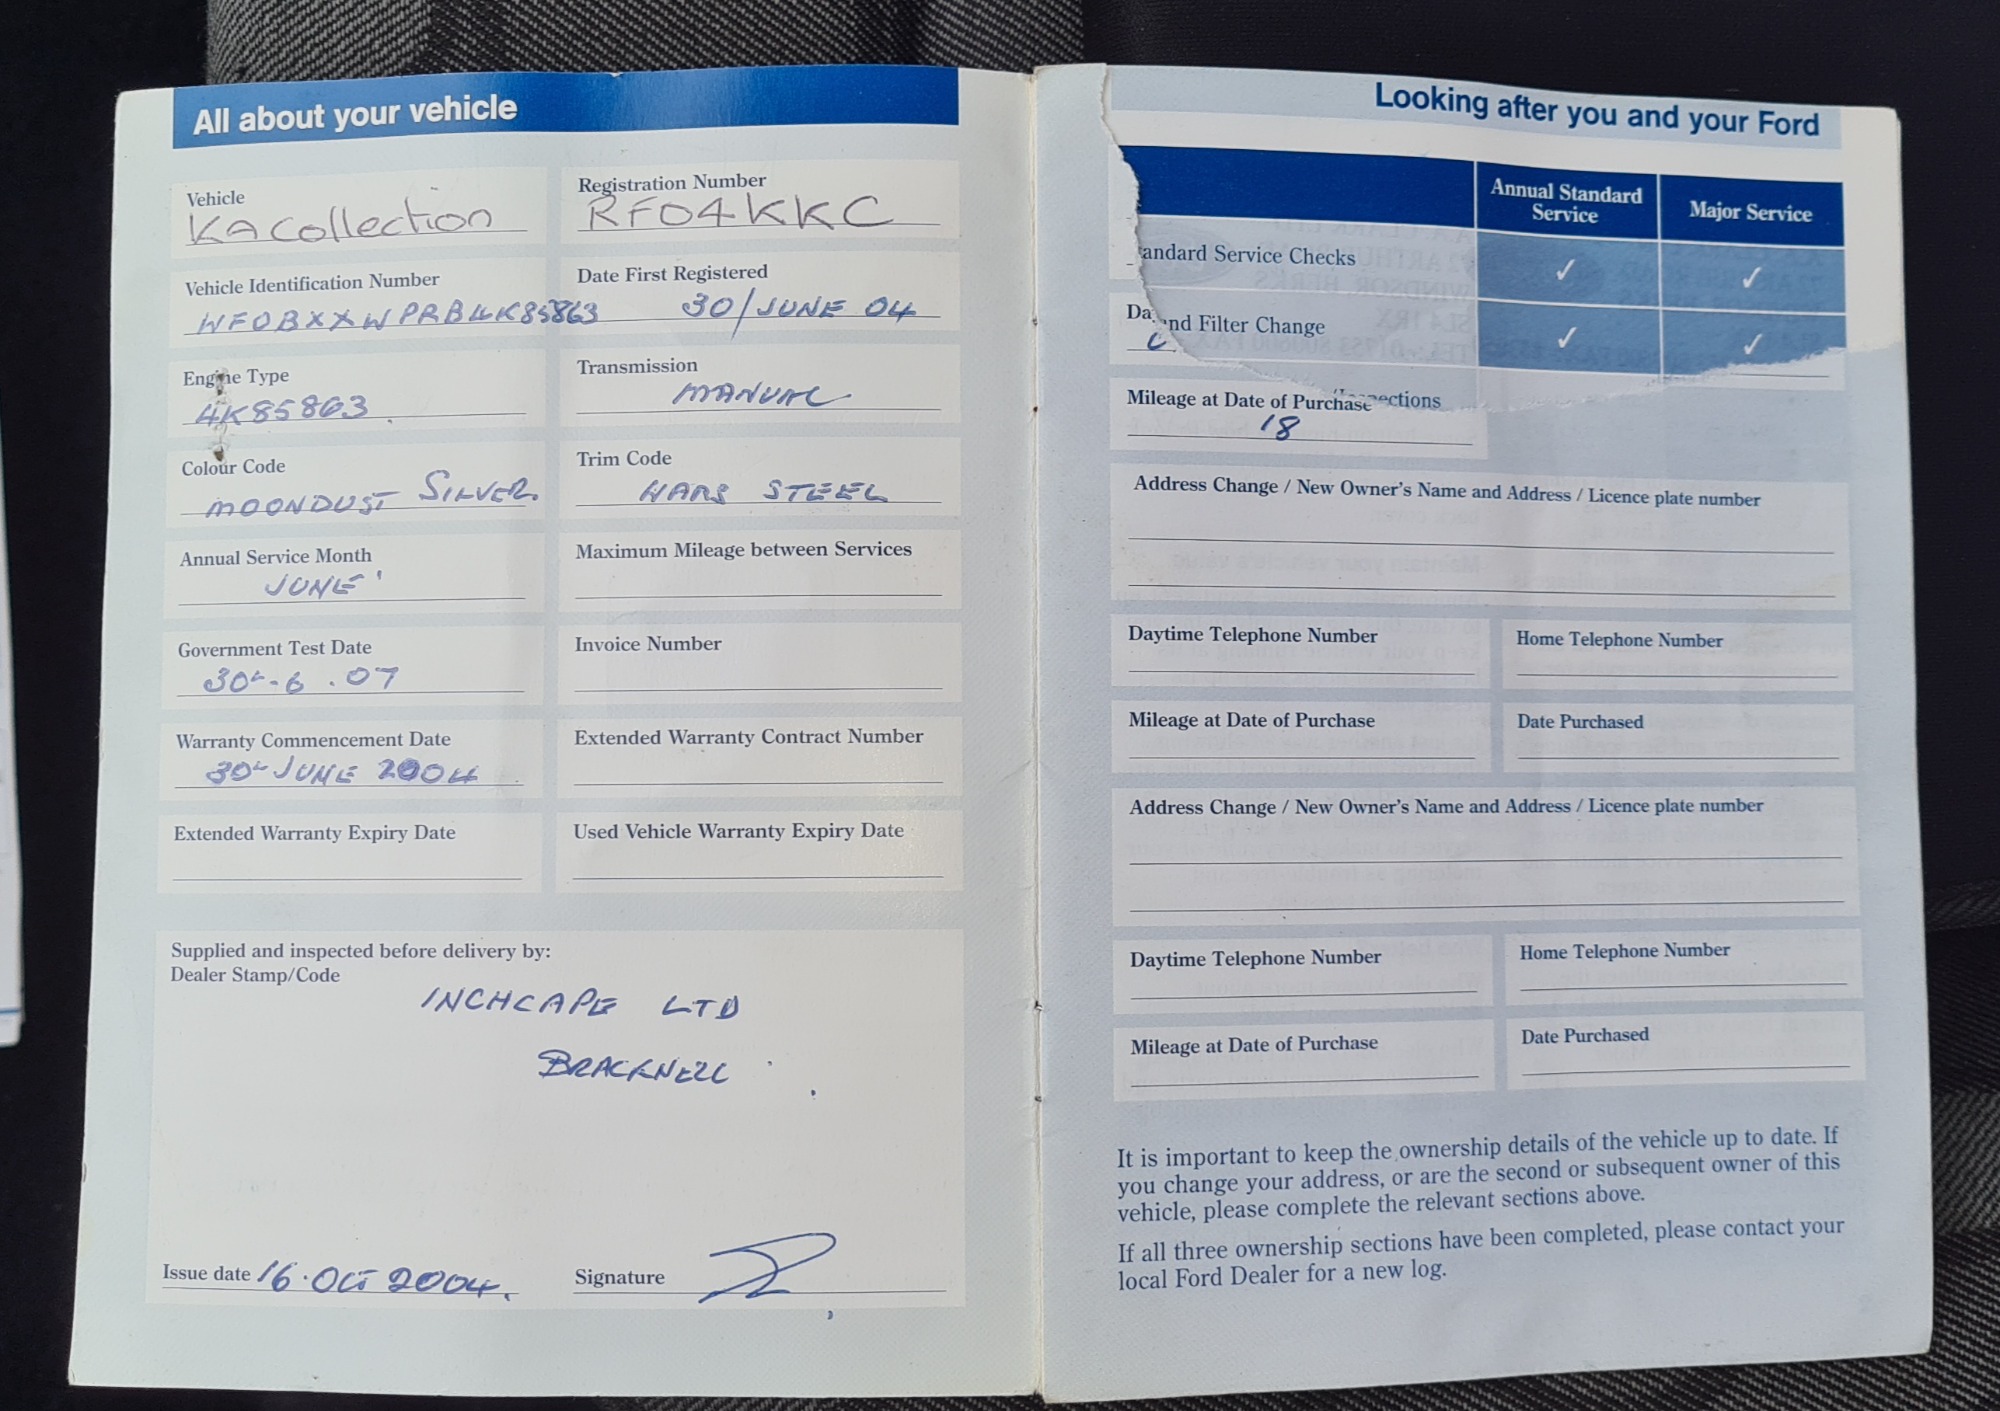 All about your vehicle
Vehicle
KA Collection
Registration Number
RF04KKC
Vehicle Identification Number
WF0BXXWPRB4K85863
Date First Registered
30/JUNE 04
Engine Type
4K85863
Transmission
MANUAL
Colour Code
MOONDUST SILVER.
Trim Code
STEEL
Annual Service Month
JUNE
Maximum Mileage between Services
Government Test Date
.6.07
Invoice Number
Warranty Commencement Date
JUNE 2004
Extended Warranty Contract Number
Extended Warranty Expiry Date
Used Vehicle Warranty Expiry Date
Supplied and inspected before delivery by:
Dealer Stamp/Code
INCHCAPE LTD
BRACKNELL
Issue date 16.OCT 2004.
Signature
Looking after you and your Ford
Annual Standard
Service
Major Service
andard Service Checks
Da
nd Filter Change
ections
Mileage at Date of Purchase
18
Address Change / New Owner's Name and Address / Licence plate number
Daytime Telephone Number
Home Telephone Number
Mileage at Date of Purchase
Date Purchased
Address Change / New Owner's Name and Address / Licence plate number
Daytime Telephone Number
Home Telephone Number
Mileage at Date of Purchase
Date Purchased
It is important to keep the ownership details of the vehicle up to date. If
you change your address, or are the second or subsequent owner of this
vehicle, please complete the relevant sections above.
If all three ownership sections have been completed, please contact your
local Ford Dealer for a new log.